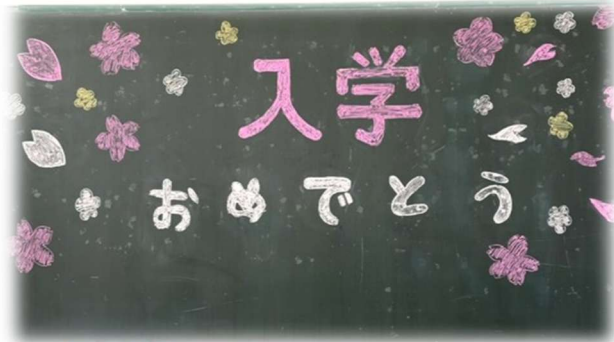 入学
おめでとう